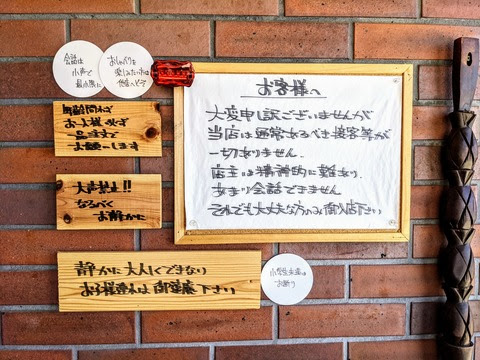 会話は
小声で
最小限に
おしゃべりを
楽しみたい方は
他店へどうぞ
年齢問わず
お一人様必ず
一品注文
お願い一します
大声禁止!!
なるべく
お静かに
静かに大人しくできない
お子様連れは御遠慮下さい
お客様へ
大変申し訳ございませんが
当店は通常あるべき接客等が
一切ありません.
店主は精神的に難あり、
あまり会話できません
それでも大丈夫な方のみ御入店下さい
小学生未満は
お断り